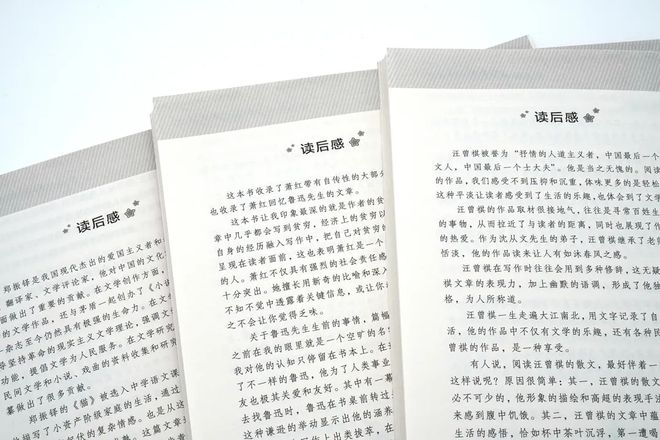 读后感
郑振铎是我国现代杰出的爱国主义者和
翻译家、文学评论家，他对中国的文化
面做出了重要的贡献。在文学创作方面，
的文学作品，还与茅盾一起创办了《小说
杂志至今仍然具有极强的生命力。在文
导坚持革命的现实主义文学理论，强调文
功能，提倡文学为人民服务。在文学研究
民间文学和小说、戏曲的资料收集和研究
纂做出了很多贡献。
郑振铎的《猫》被选入中学语文课
描写了小资产阶级家庭的生活，通过
读后感
这本书收录了萧红带有自传性的大部分
也收录了萧红回忆鲁迅先生的文章。
这本书让我印象最深的就是作者的贫
章中几乎都会写到贫穷，经济上的贫穷以
自身的经历融入写作中，把自己对贫穷的
呈现在读者面前，这也表明萧红是一个
人。萧红不仅具有强烈的社会责任感
十分突出。她擅长用新奇的比喻和深入
不知不觉中透露着关键信息，或让你
之不会让你觉得乏味。
关于鲁迅先生生前的事情，篇幅
之前在我的眼里就是一个空旷的名
我对他的认知只停留在书本上。在
了不一样的鲁迅，他为了人类事业
友也极其关爱和友好。其中有一幕
去找鲁迅时，鲁迅在书桌前转过
这种谦逊的举动显示出他的涵养
读后感
汪曾祺被誉为“抒情的人道主义者，中国最后一个
文人，中国最后一个士大夫”。他是当之无愧的。阅读
的作品，我们感受不到压抑和沉重，体味更多的是轻松
这种平淡让读者感受到了生活的乐趣，也体会到了文学
汪曾祺的作品取材很接地气，往往是寻常百姓生
的事物，从而拉近了与读者的距离，同时也展现了作
的热爱。作为沈从文先生的弟子，汪曾祺继承了老
恬淡，他的作品读来让人有如沐春风之感。
汪曾祺在写作时往往会用到多种修辞，这无疑
祺文章的表现力，加上幽默的语调，形成了他独
格，为人所称道。
汪曾祺一生走遍大江南北，用文字记录了自
活，他的作品中不仅有文学的乐趣，还有各种民
曾祺的作品，是一种享受。
有人说，阅读汪曾祺的散文，最好伴着一
这样说呢？原因很简单：其一，汪曾祺的散
必不可少的，他形象的描绘和高超的表现手法
来感到腹中饥饿。其二，汪曾祺的文章中蕴
生活的感悟，恰如杯中茶叶沉浮，第一遭喝